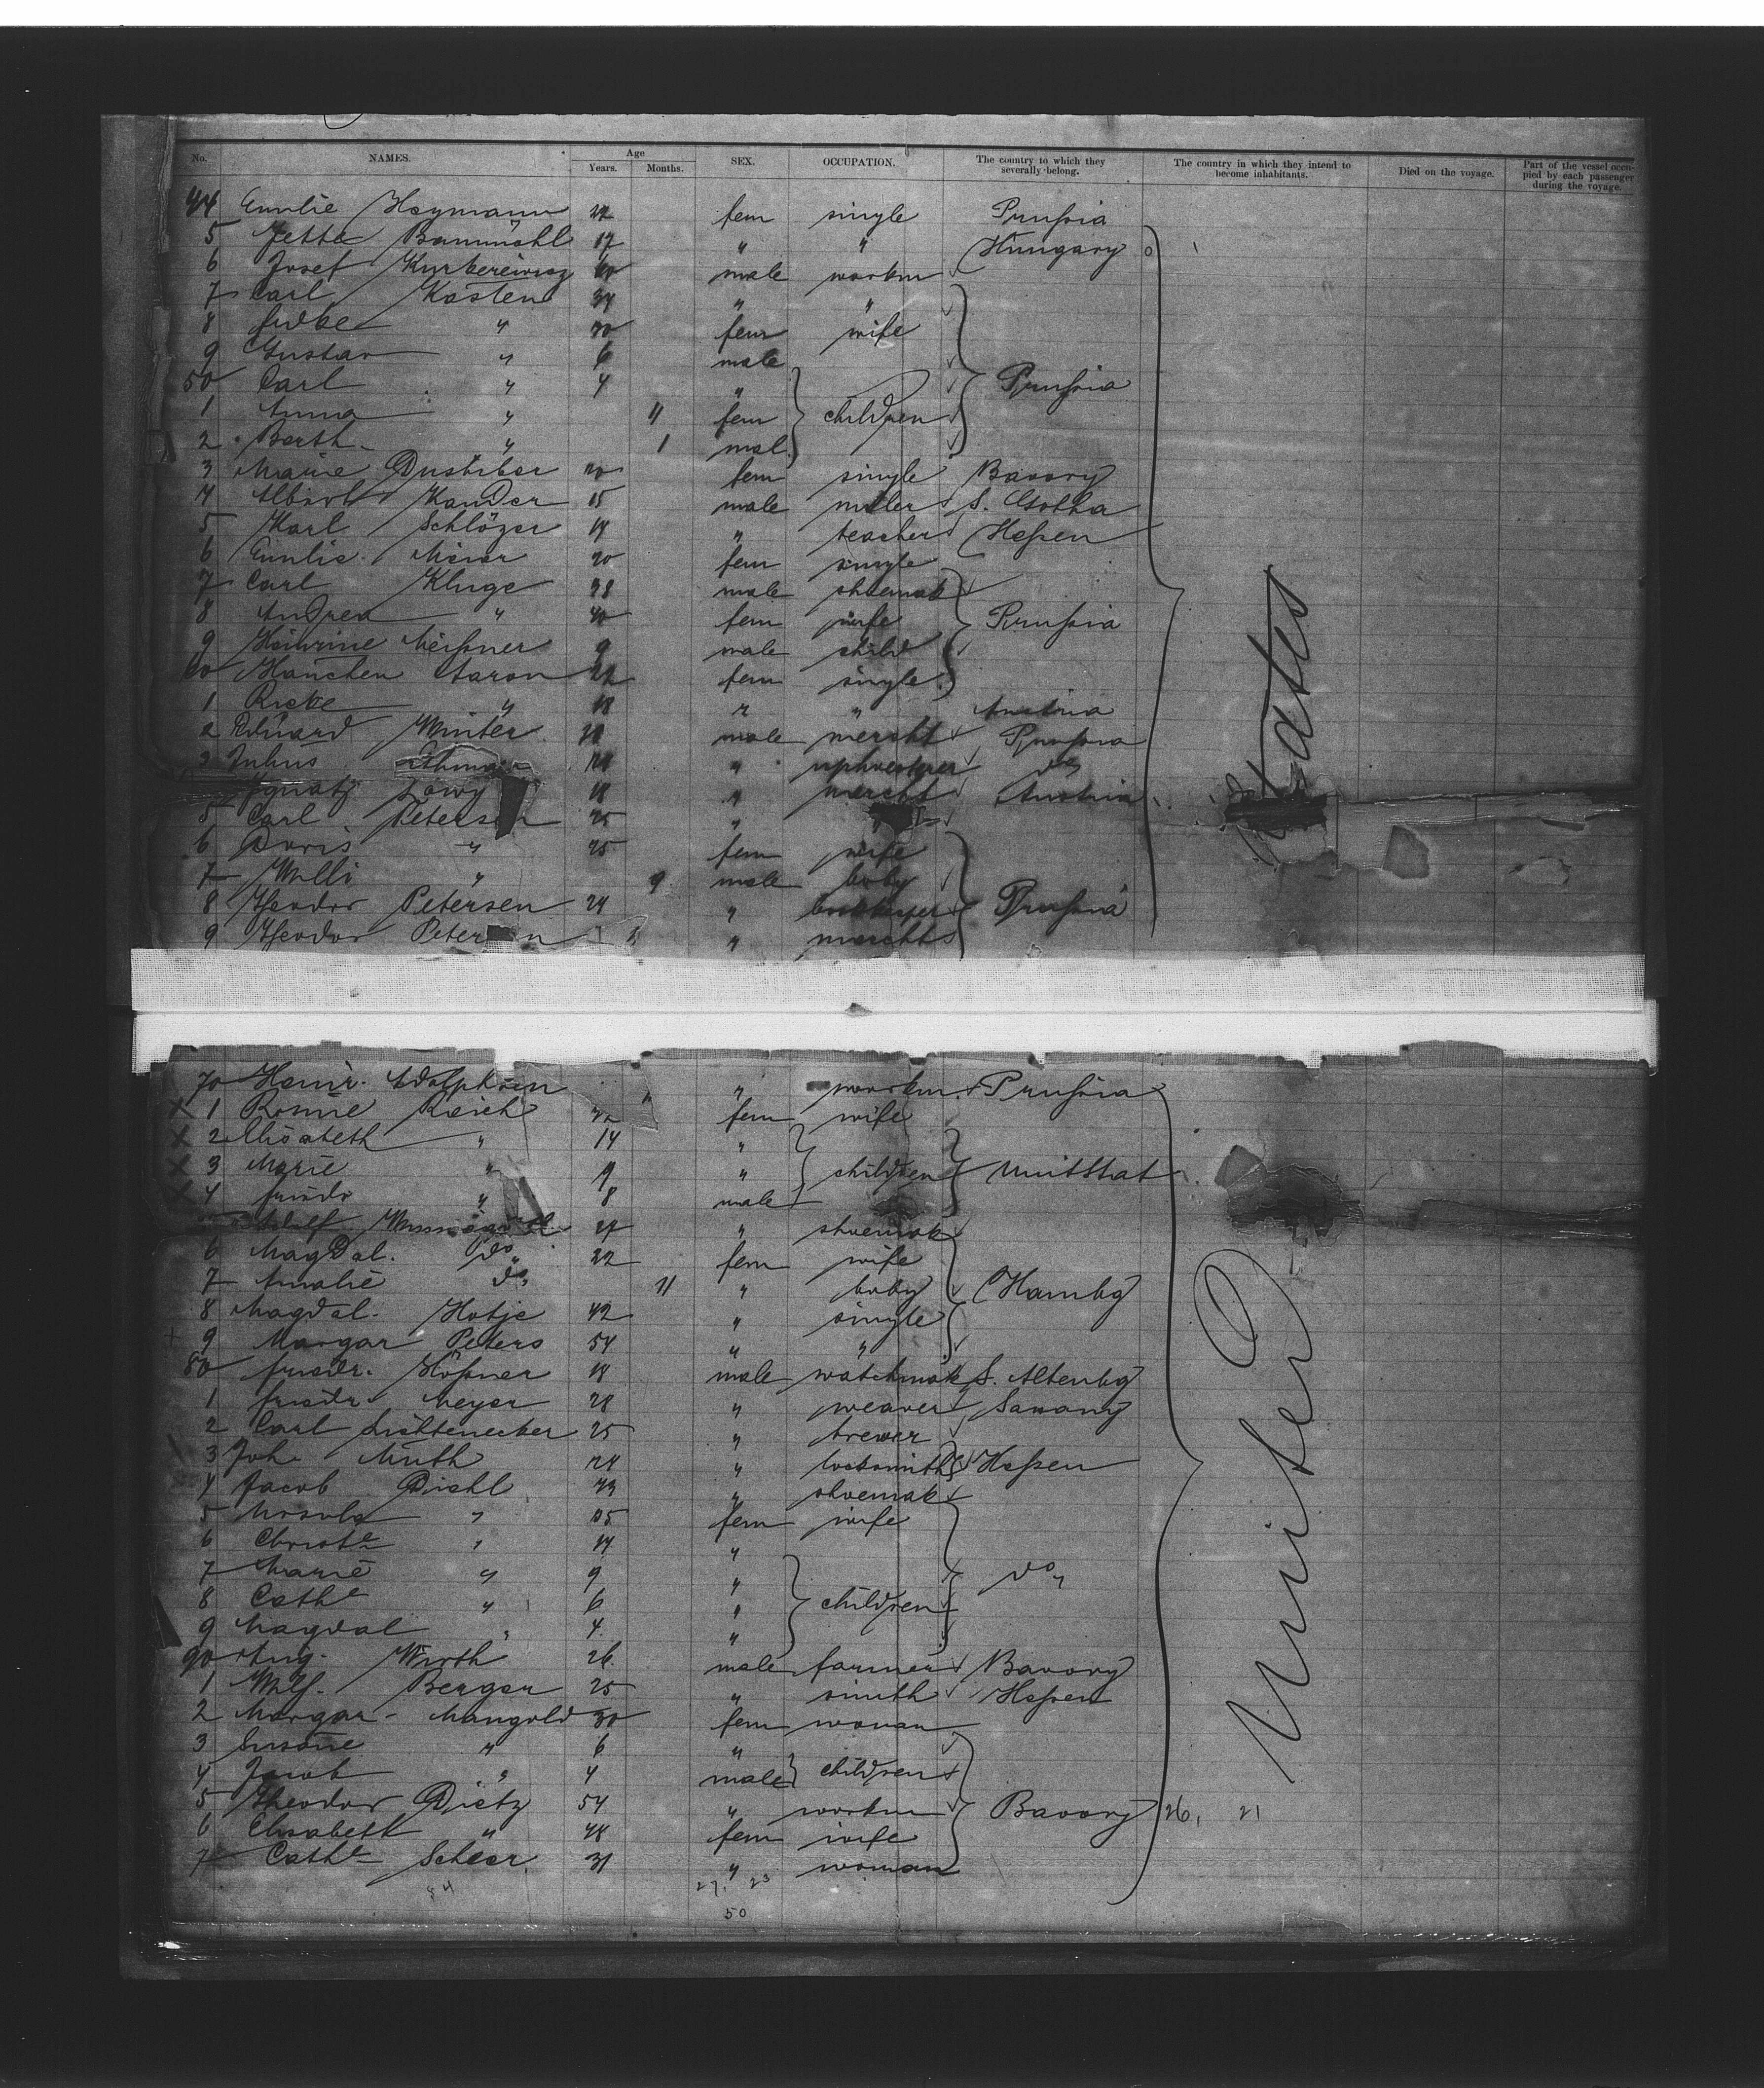 No. NAMES. Age Years. Months. SEX. OCCUPATION. The country to which they severally belong. The country in which they intend to become inhabitants. Died on the voyage. Part of the vessel occupied by each passenger during the voyage.
44 Emilie Heymann 22 fem single Prussia
5 Jette Baumöhl 17 " " Hungary
6 Josef male workm
7 Carl Kasten 34 " "
8 " 30 fem wife
9 Gustav " 6 male
50 Carl " 4 " Prussia
1 Anna " 11 fem children
2 Barth. " 1 mal.
3 Marie 20 fem single Bavory
4 Albert Kander 15 male miller S. Gotha
5 Karl Schlözer 19 " teacher Hessen
6 Emilie Meier 20 fem single
7 Carl Kluge 38 male shoemak
8 Andrea " 40 fem wife Prussia
9 Meissner 9 male child
60 Hanchen Aaron 22 fem single
1 Ricke " 18 " " Austria
2 Eduard Winter male mercht Prussia
3 Julius " upholsterer do
Ignatz Löwy 18 " mercht Austria
5 Carl Petersen 25 "
6 Doris " 25 fem wife
7 Willi " 9 male baby
8 Theodor Petersen 24 " bookkeeper Prussia
9 Theodor Petersen " mercht
States
70 Heinr. Adolphsen " workm Prussia
X 1 Rosine Reich fem wife
X 2 Elisabeth " 14 "
X 3 Marie " 9 " children UnitStat
X 4 Friedr " 8 male
Adolf 27 " shoemak
6 Magdal. do 22 fem wife
7 Amalie do 11 " baby Hambg
8 Magdal. Hotje 42 " single
9 Margar Peters 54 " "
80 Friedr. Hössner 18 male watchmak S. Altenbg
1 Friedr. Meyer 28 " weaver Saxony
2 Carl Lichtenecker 25 " brewer
3 Joh. Muth 24 " locksmith Hessen
4 Jacob Diehl 43 " shoemak
5 Ursula " 35 fem wife
6 Christe " 14 "
7 Marie " 9 " do
8 Cathe " 6 " children
9 Magdal " 4 "
90 Aug. Wirth 26 male farmer Bavory
1 Wilh. Berger 25 " smith Hessen
2 Margar. Mangold 30 fem woman
3 Susane " 6 "
4 Jacob " 4 male children
5 Theodor Dietz 54 " workm Bavory 26, 21
6 Elisabeth " 48 fem wife
7 Cathe Scheer 31 " woman
84 27. 23
50
United